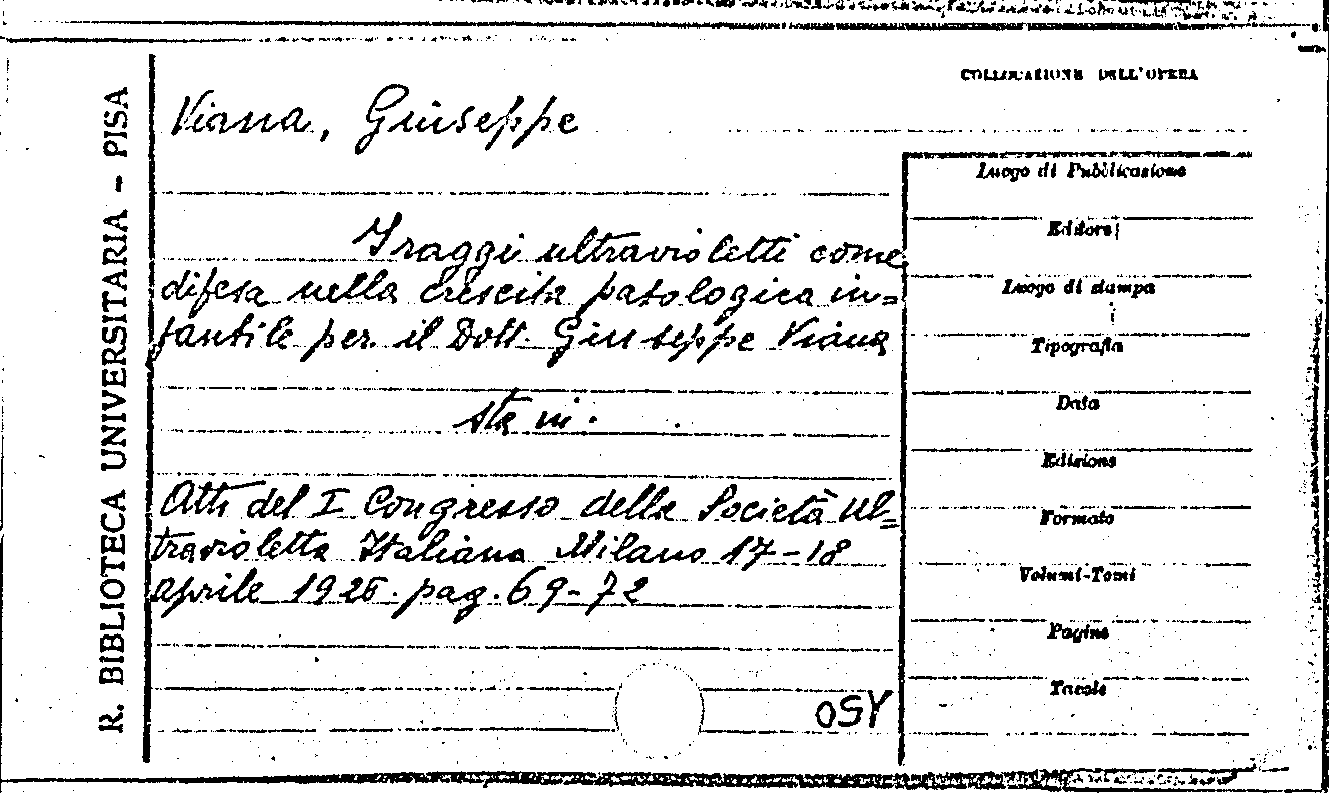 R. BIBLIOTECA UNIVERSITARIA - PISA
COLLOCAZIONE DELL'OPERA
Viana, Giuseppe
I raggi ultravioletti come
difesa nella crescita patologica in=
fantile per il Dott. Giuseppe Viana
sta in.
Atti del I Congresso della Società Ul=
travioletta Italiana Milano 17-18
aprile 1926. pag. 69-72
OSY
Luogo di Pubblicazione
Editore
Luogo di stampa
Tipografia
Data
Edizione
Formato
Volumi-Tomi
Pagine
Tavole